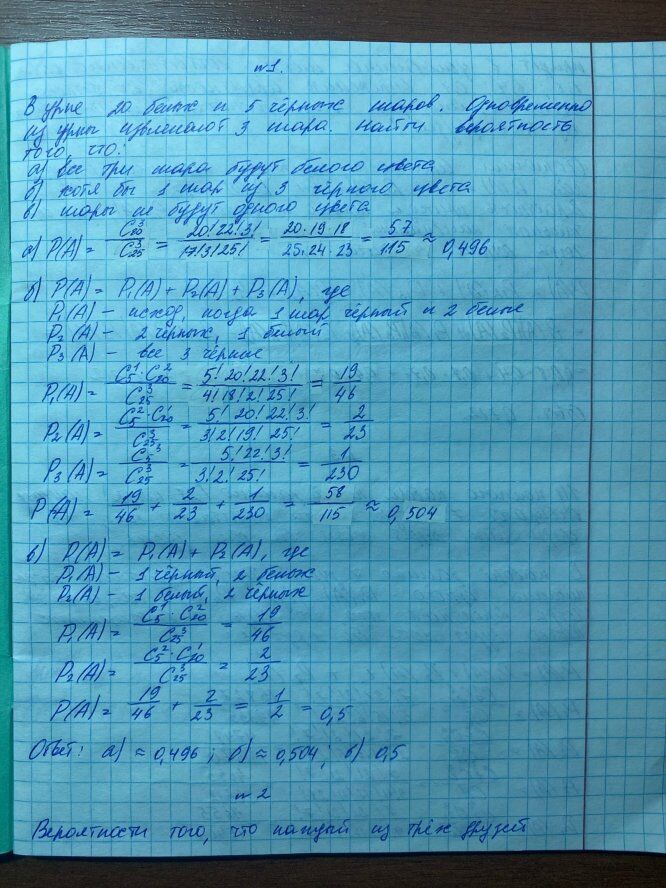 №1.
В урне 20 белых и 5 чёрных шаров. Одновременно
из урны извлекают 3 шара. Найти вероятность
того, что:
а) все три шара будут белого цвета
б) хотя бы 1 шар из 3 чёрного цвета
в) шары не будут одного цвета
а) P(A) = C₂₀³/C₂₅³ = 20! 22! 3!/17! 3! 25! = 20·19·18/25·24·23 = 57/115 ≈ 0,496
б) P(A) = P₁(A) + P₂(A) + P₃(A), где
P₁(A) – исход, когда 1 шар чёрный и 2 белые
P₂(A) – 2 чёрных, 1 белый
P₃(A) – все 3 чёрные
P₁(A) = C₅¹·C₂₀²/C₂₅³ = 5! 20! 22! 3!/4! 18! 2! 25! = 19/46
P₂(A) = C₅²·C₂₀¹/C₂₅³ = 5! 20! 22! 3!/3! 2! 19! 25! = 2/23
P₃(A) = C₅³/C₂₅³ = 5! 22! 3!/3! 2! 25! = 1/230
P(A) = 19/46 + 2/23 + 1/230 = 58/115 ≈ 0,504
в) P(A) = P₁(A) + P₂(A), где
P₁(A) – 1 чёрный, 2 белых
P₂(A) – 1 белый, 2 чёрных
P₁(A) = C₅¹·C₂₀²/C₂₅³ = 19/46
P₂(A) = C₅²·C₂₀¹/C₂₅³ = 2/23
P(A) = 19/46 + 2/23 = 1/2 = 0,5
Ответ: а) ≈ 0,496; б) ≈ 0,504; в) 0,5
№2
Вероятности того, что каждый из трёх друзей